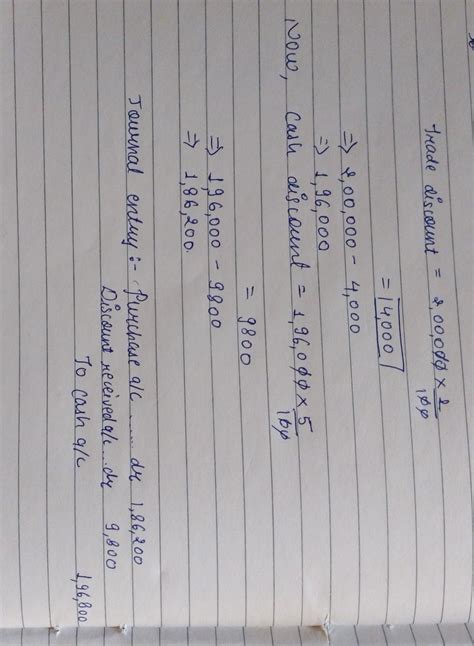 trade discount = 2,00,000 × 2/100
= 14,000
⇒ 2,00,000 - 4,000
⇒ 1,96,000
Now, Cash discount = 1,96,000 × 5/100
= 9800
⇒ 196,000 - 9800
⇒ 1,86,200
Journal entry :- Purchase a/c ...... dr 1,86,200
Discount received a/c ... dr 9,800
To Cash a/c 1,96,800